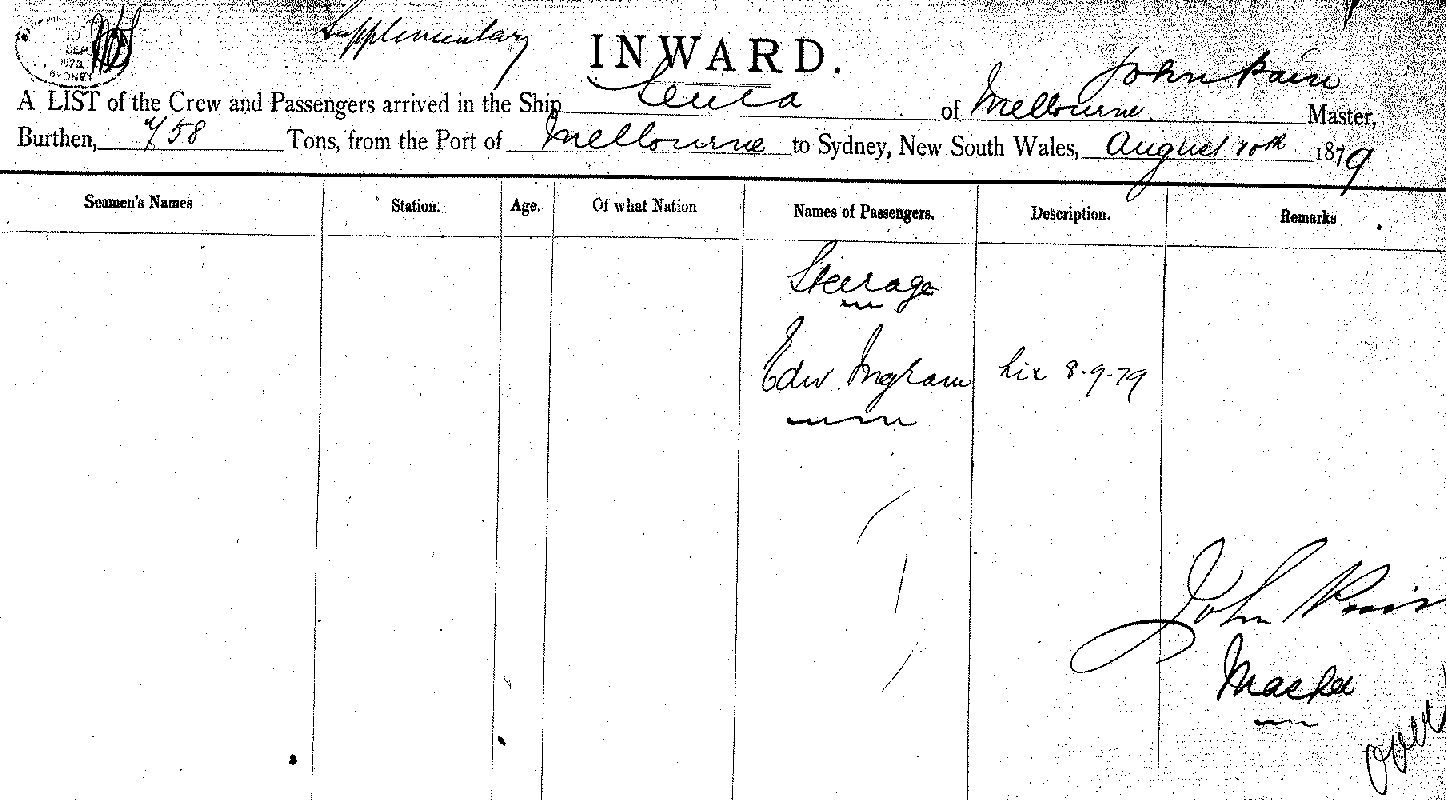 Supplementary
INWARD.
John Pain
A LIST of the Crew and Passengers arrived in the Ship Leura of Melbourne Master,
Burthen, 758 Tons, from the Port of Melbourne to Sydney, New South Wales, August 10th 1879
Seamen's Names Station. Age. Of what Nation Names of Passengers. Description. Remarks
Steerage
Edw Ingram 8-9-79
John Pain
Master
over